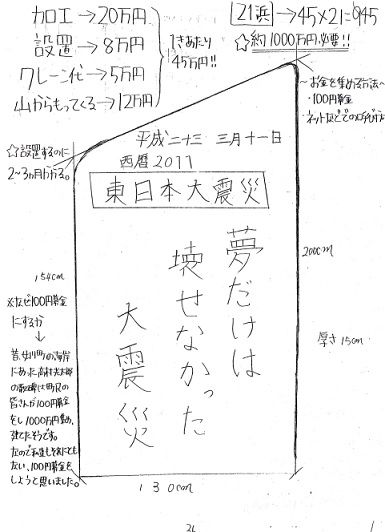 加工→20万円
設置→8万円
クレーン代→5万円
山からもってくる→12万円
1きあたり
45万円!!
21浜→45×21=945
☆約1000万円必要!!
~お金を集める方法~
・100円募金
・ネットなどでの
☆設置するのに
2~3ヵ月かかる。
平成二十三 三月十一日
西暦2011
東日本大震災
夢だけは
壊せなかった
大震災
154cm
200cm
厚さ15cm
130cm
※なぜ100円募金
にするか
→
昔、女川町の海岸
にあった高村光太郎
の歌碑は町民の
皆さんが100円募金
をし1000万円集め、
建てたそうです。
なので私達もそれにとも
ない、100円募金を
しようと思いました。